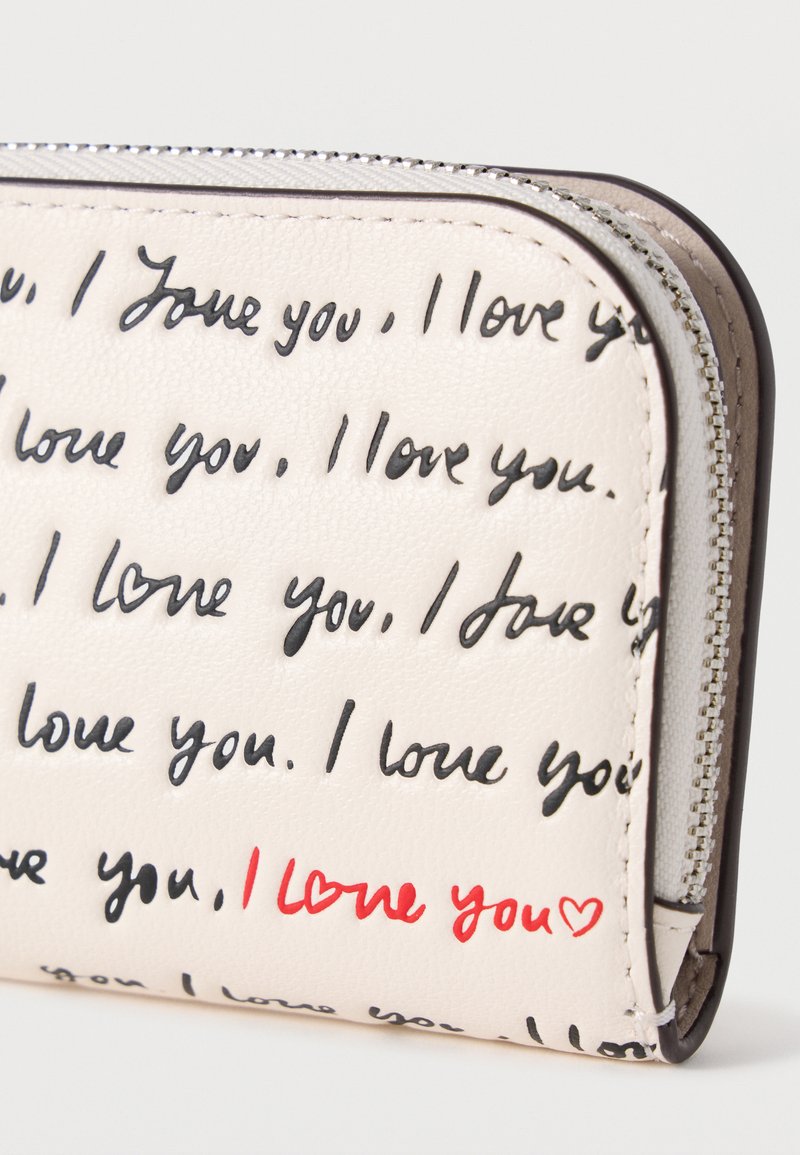 I love you, I love
love you, I love you.
I love you, I love
love you. I love you
you, I love you♡
you. I love you, I